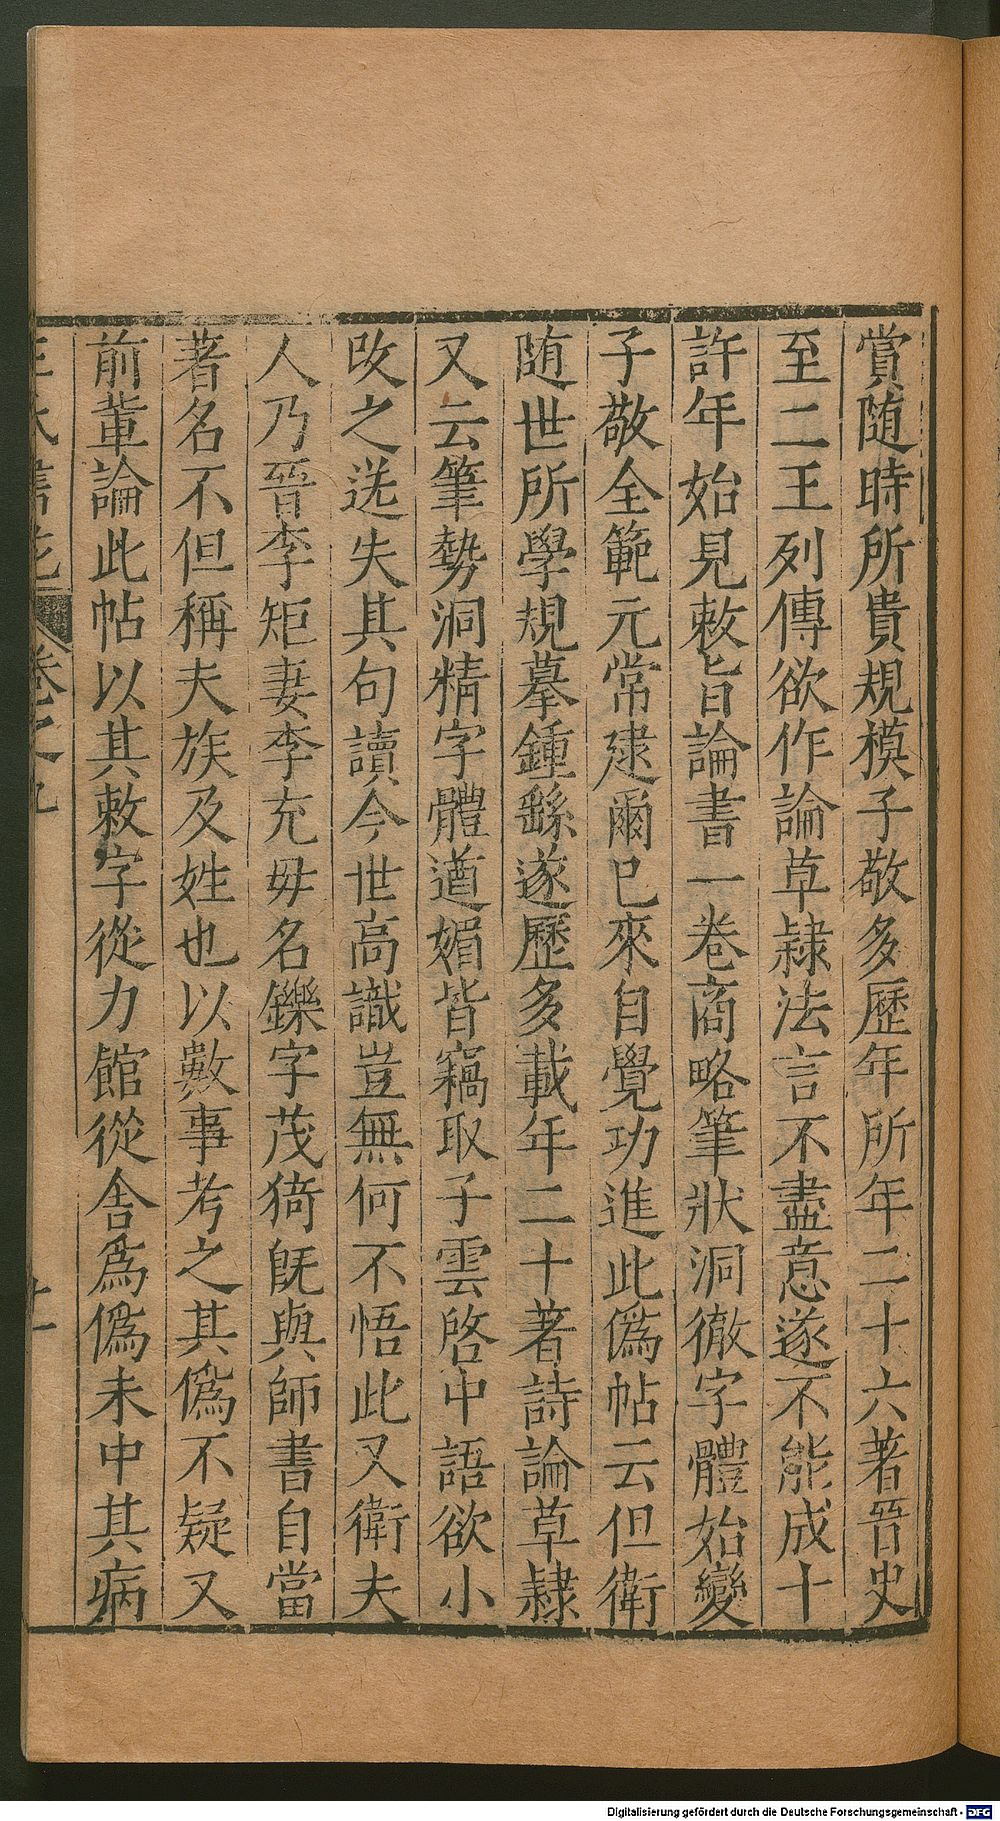 賞随時所貴規模子敬多歷年所年二十六著晉史
至二王列傳欲作論草隷法言不盡意遂不能成十
許年始見敕旨論書一卷商略筆狀洞徹字體始變
子敬全範元常逮爾巳來自覺功進此僞帖云但衛
随世所學規摹鍾繇遂歷多載年二十著詩論草隷
又云筆勢洞精字體遒媚皆竊取子雲啓中語欲小
改之迻失其句讀今世高識豈無何不悟此又衛夫
人乃晉李矩妻李充毋名鑠字茂猗旣與師書自當
著名不但稱夫族及姓也以數事考之其僞不疑又
前輩論此帖以其敕字從力館從舍爲僞未中其病
卷之九
Digitalisierung gefördert durch die Deutsche Forschungsgemeinschaft - DFG